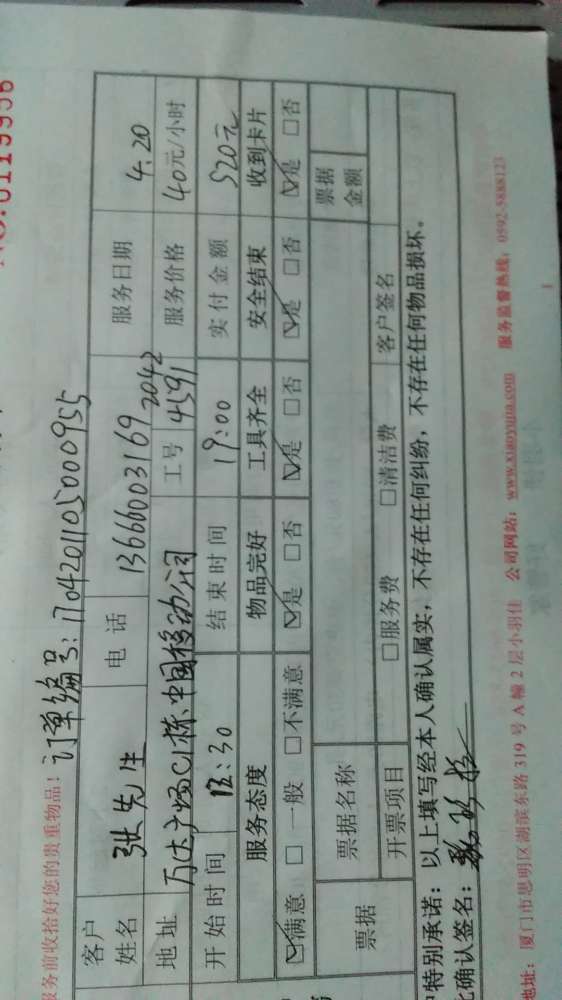 NO:0119956
服务前收拾好您的贵重物品!
订单编号:1704201105000955
客户姓名 张先生 电话 13666003169 服务日期 4.20
地址 万达广场C1栋、中国移动公司 工号 2042 4591 服务价格 40元/小时
开始时间 12:30 结束时间 19:00 实付金额 520元
服务态度 物品完好 工具齐全 安全结束 收到卡片
☑满意 □一般 □不满意 ☑是 □否 ☑是 □否 ☑是 □否 ☑是 □否
票据 票据名称 票据金额
开票项目 □服务费 □清洁费 客户签名
特别承诺:以上填写经本人确认属实,不存在任何纠纷,不存在任何物品损坏。
确认签名:
地址:厦门市思明区湖滨东路319号A幢2层小羽佳 公司网站:www.xiaoyujia.com 服务监督热线:0592-5888123